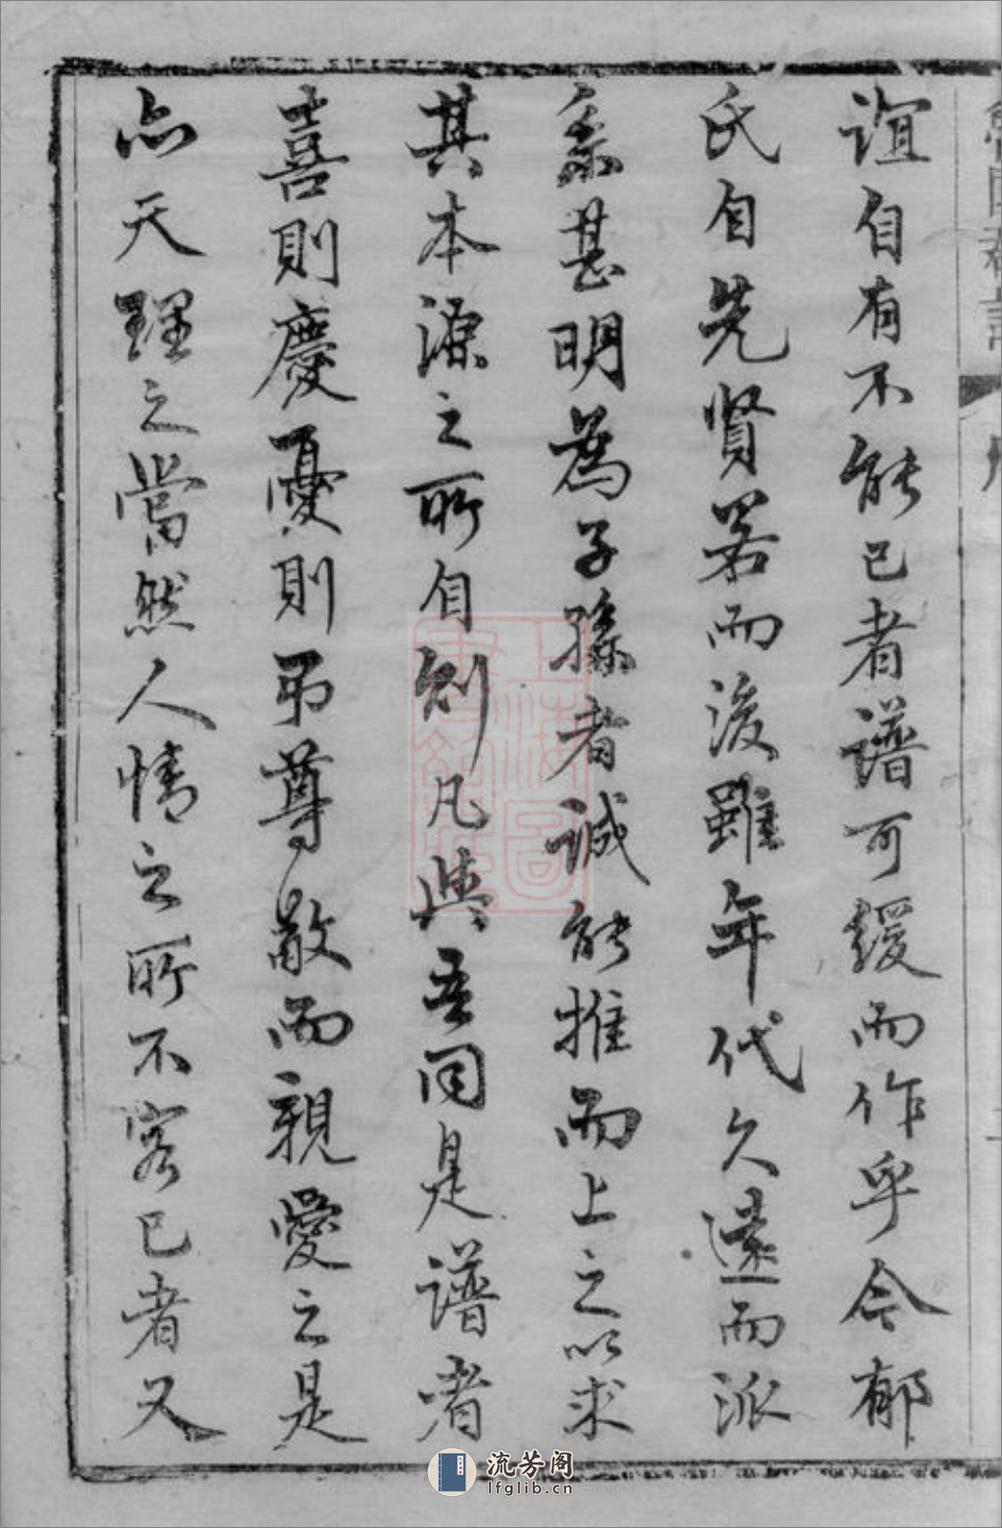 誼自有不能已者譜可緩而作乎今郁
氏自先賢若而後雖年代久遠而派
系甚明為子孫者誠能推而上之以求
其本源之所自創凡與吾同是譜者
喜則慶憂則弔尊敬而親愛之是
亦天理之當然人情之所不容已者又
上海圖
書館藏
流芳阁
lfglib.cn